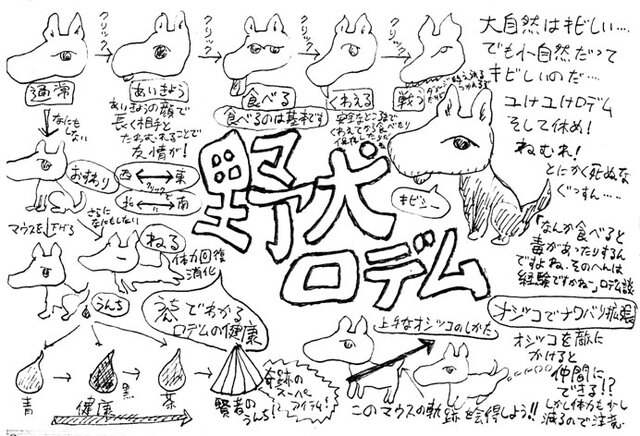 クリック
クリック
クリック
クリック
クリック
通常
あいきょう
あいきょうの顔で
長く相手と
たわむれることで
友情が!
食べる
食べるのは基本です
くわえる
安全なところまで
くわえてから食べたり
戦う
大自然はキビしい…
でも小自然だって
キビしいのだ…
ユけユけロデム
そして休め!
ねむれ!
とにかく死ぬな
ぐっすん……
「なんか食べると
毒があったりするん
ですよね、そのへんは
経験ですかね」ロデム談
なにも
しない
おすわり
西 東
クリックで
北 南
マウスを下げる
さらに
なにもしない
ねる
体力回復
消化
うんち
野犬
ロデム
キビシー
うんちでわかる
ロデムの健康
青
健康
黒
茶
賢者の
うんち!
奇跡の
スーパー
アイテム!
上手なオシッコのしかた
このマウスの軌跡を会得しよう!!
オシッコでナワバリ拡張
オシッコを敵に
かけると
仲間に
できる!?
しかし体力も少し
減るので注意